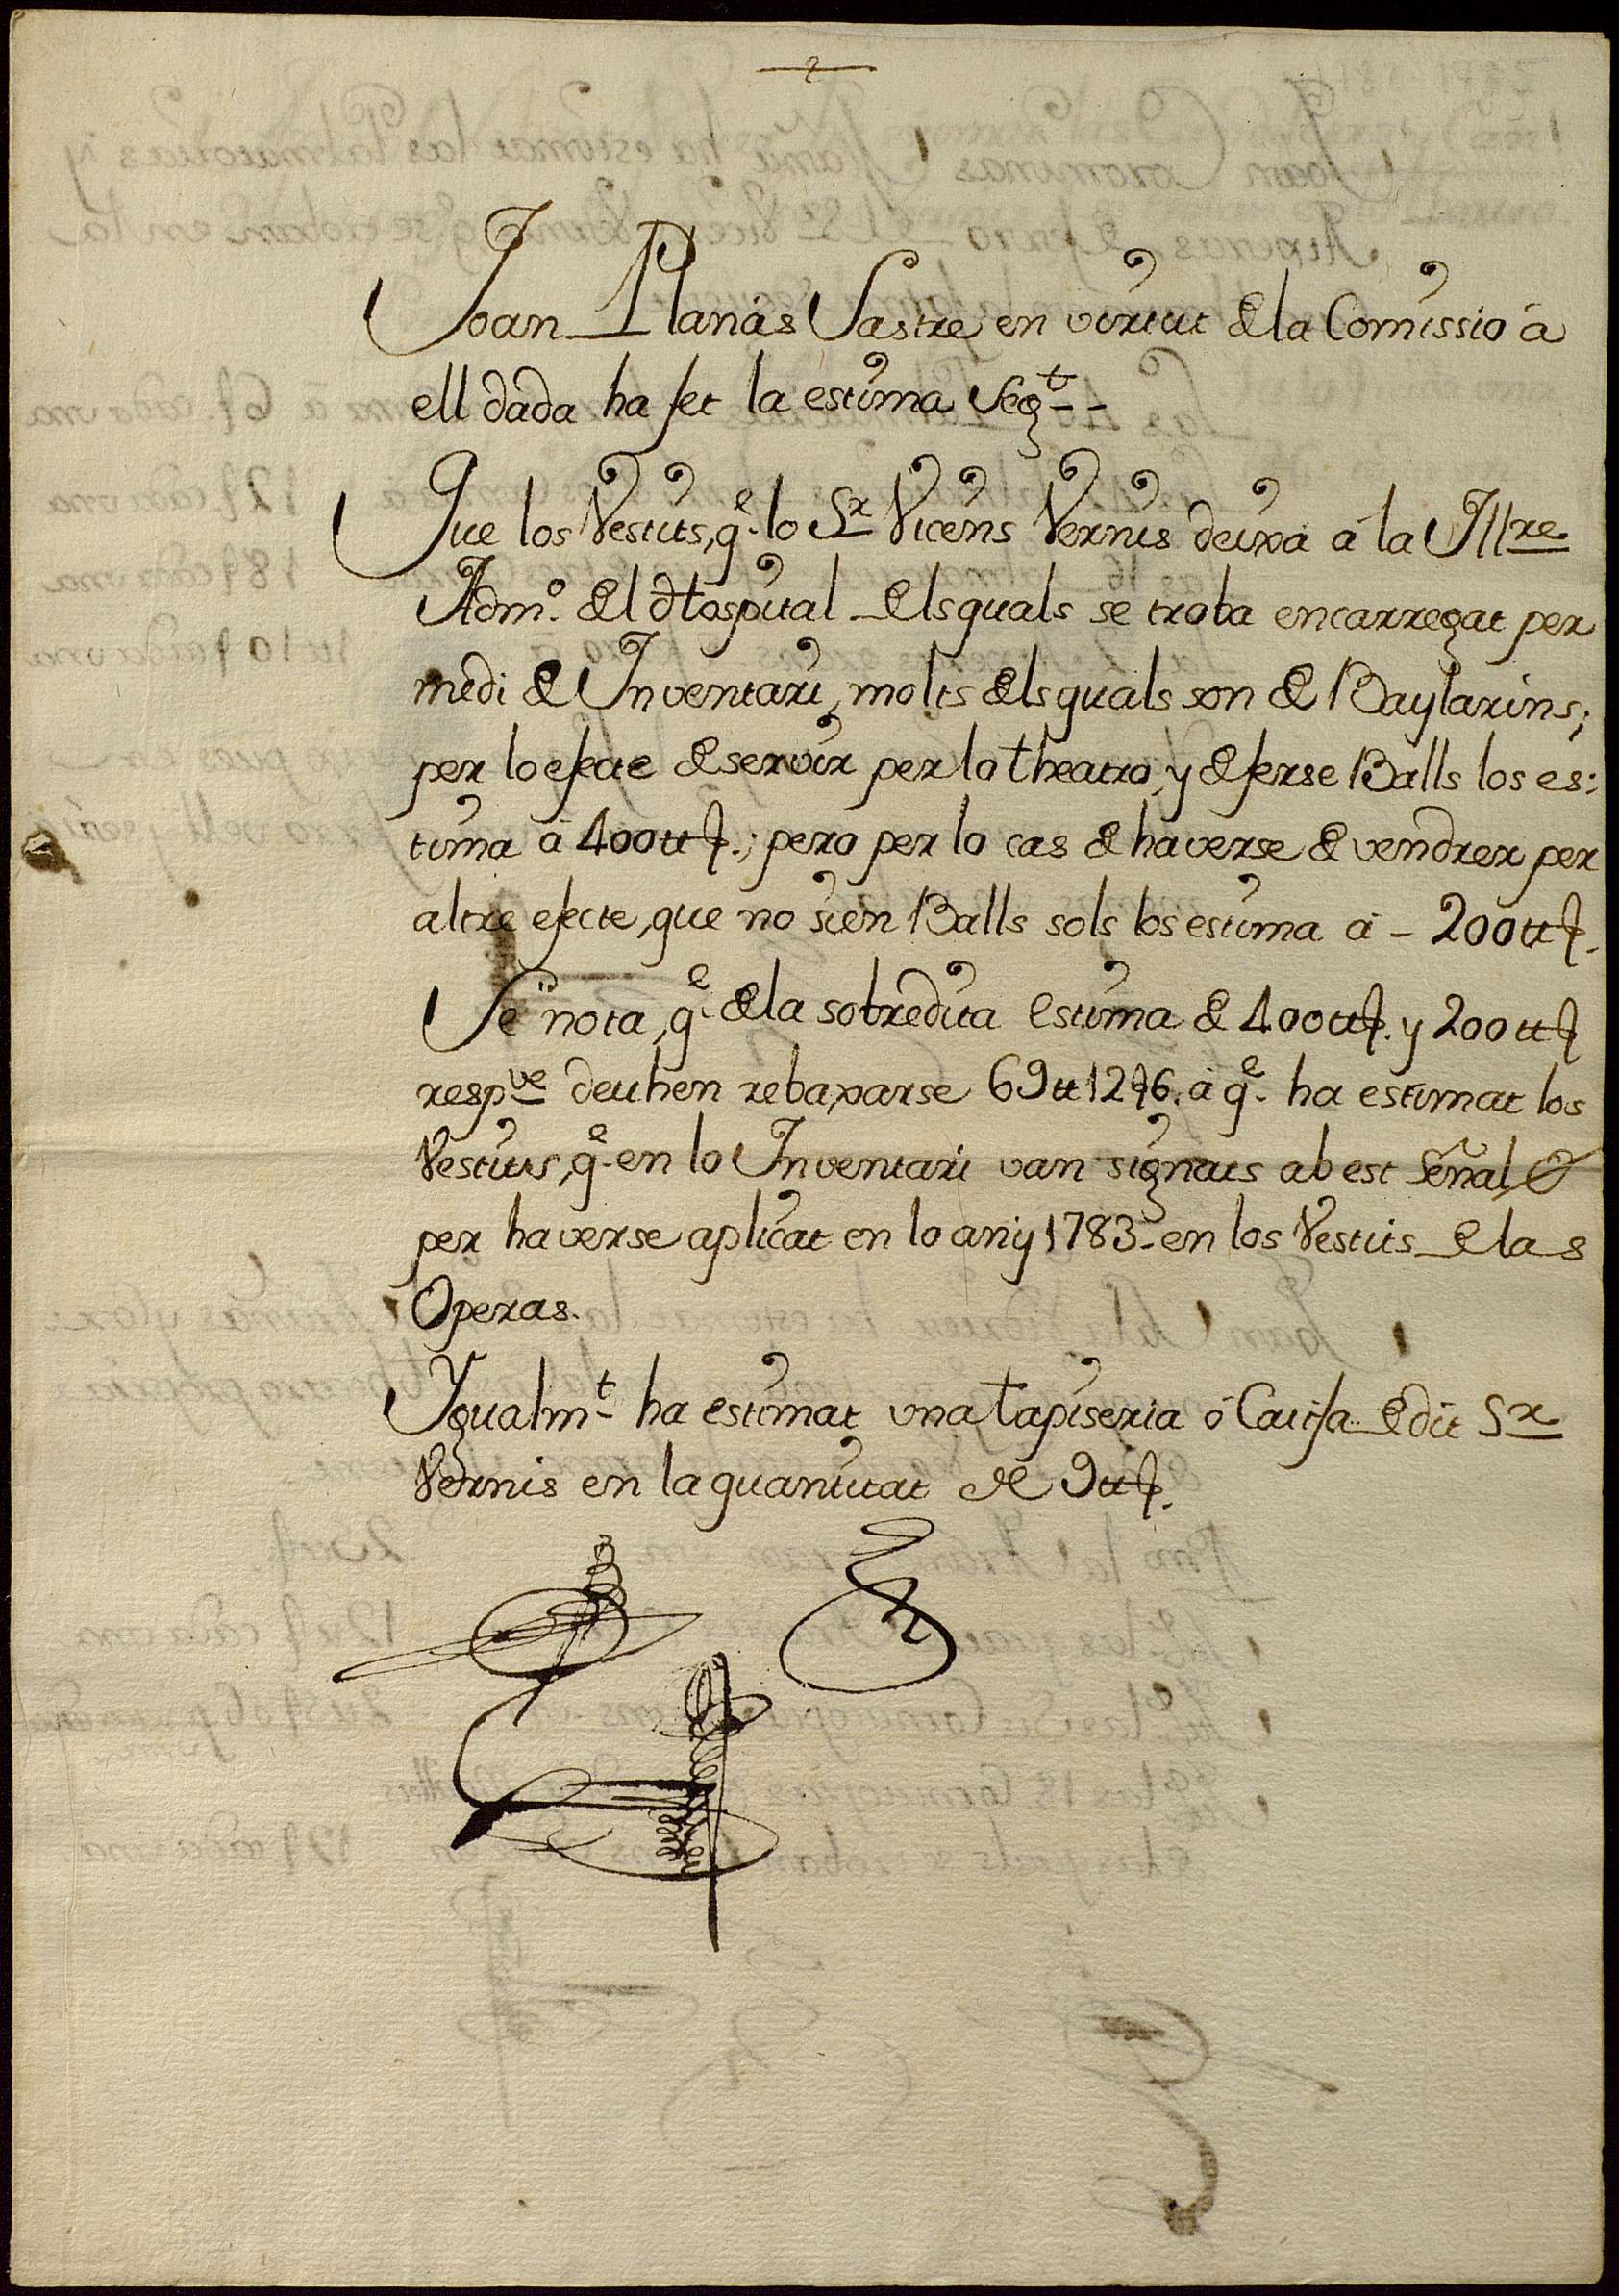 Joan Planas Sastre en virtut de la Comissio á
ell dada ha fet la estima Segt--
Que los Vestits, qe. lo Sr Vicens Vernis deixá á la Illre
Admo. del Hospital dels quals se troba encarregat per
medi de Inventari, molts dels quals son de Baylarins;
per lo efecte de servir per lo theatro, y de ferse Balls los es:
tima á 400tt ƒ.; pero per lo cas de haverse de vendrer per
altre efecte, que no sien Balls sols los estima á - 200tt ƒ.
Se nota, qe. de la sobredita estima de 400tt ƒ. y 200tt ƒ
respve deuhen rebaxarse 69tt 12ƒ6. á qe. ha estimat los
Vestits, qe. en lo Inventari van signats ab est señal,
per haverse aplicat en lo any 1783. en los Vestits de las
Operas.
Igualmt. ha estimat una tapiseria ó Caitfa de dit Sr
Vernis en la quantitat de 9tt ƒ.